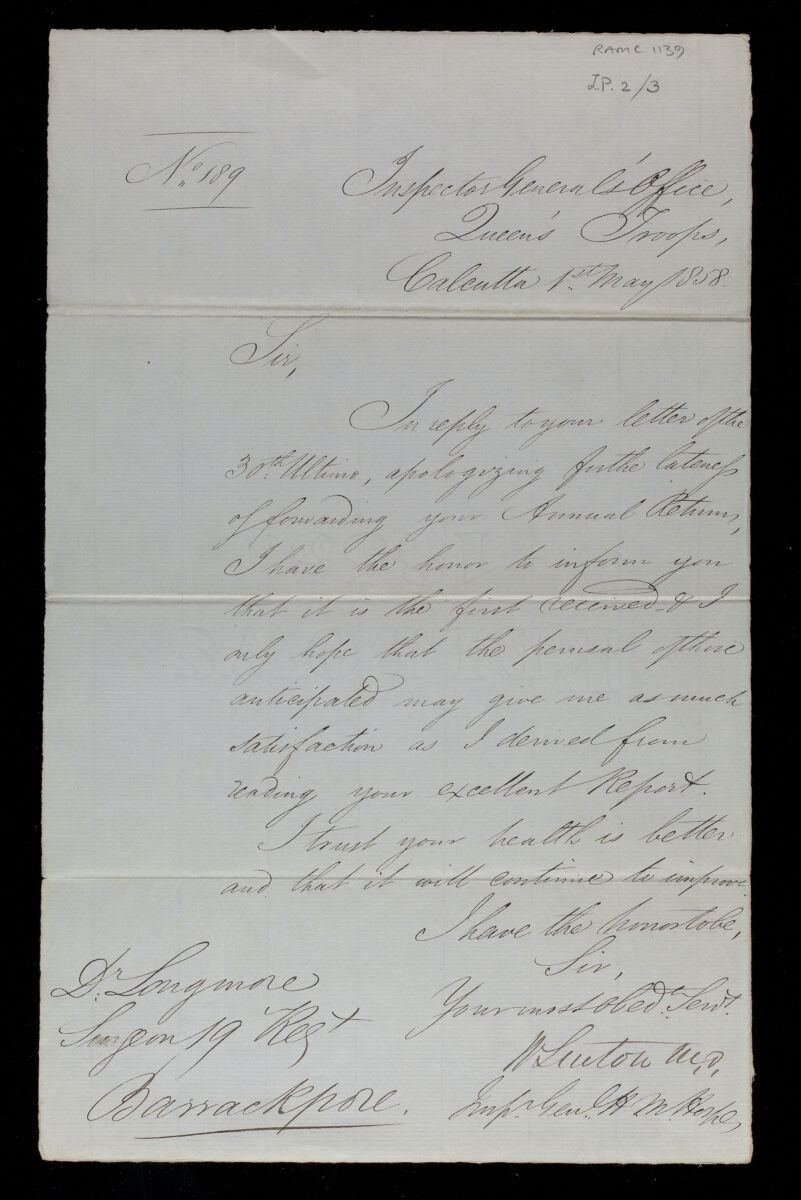 RAMC 1139
LP. 2/3
No 189
Inspector General's Office,
Queen's Troops,
Calcutta 1st May 1858.
Sir,
In reply to your letter of the
30th Ultimo, apologizing for the lateness
of forwarding your Annual Return,
I have the honor to inform you
that it is the first received & I
only hope that the perusal of those
anticipated may give me as much
satisfaction as I derived from
reading your excellent Report.
I trust your health is better
and that it will continue to improve.
I have the honor to be,
Sir,
Your most obedt. Servt.
W Linton M.D.
Inspr. Genl. H. M. Hosps.
Dr. Longmore
Surgeon 19 Regt
Barrackpore.